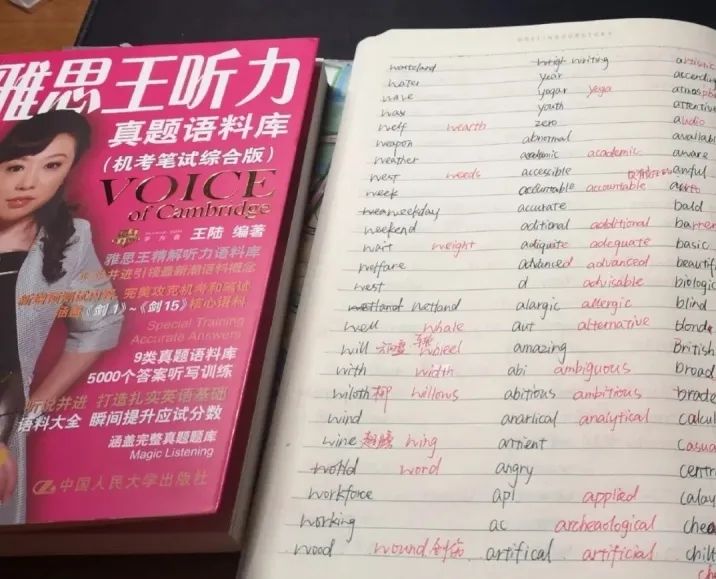 雅思王听力
真题语料库
(机考笔试综合版)
VOICE
of Cambridge
王陆 编著
雅思王精解听力语料库
完美攻克机考和笔试
涵盖《剑1》~《剑15》核心语料
Special Training
Accurate Answers
9类真题语料库
5000个答案听写训练
听说并进 打造扎实英语基础
语料大全 瞬间提升应试分数
涵盖完整真题题库
Magic Listening
中国人民大学出版社
wasteland writing
water year accordin
wave yogar yoga atmosph
way youth attentive
welf wearth zero audio
weapon abnormal availabl
weather academic academic aware
west weeds accessible
week accountable
weekday accurate bald
weekend aditional additional barren
wait weight adiquite adequate basic
welfare advanced advanced beautif
west d advisable biologic
wetland wetland alargic allergic blind
well whale aut alternative blonde
will 车轮 wheel amazing British
with width abi ambiguous broad
wiloth 柳 willows abitious ambitious
wind anarlical analytical calcul
wine 翅膀 wing antient casua
word angry centr
workforce apl applied
working ac archeaological
wood wound 创伤 artifical artificial